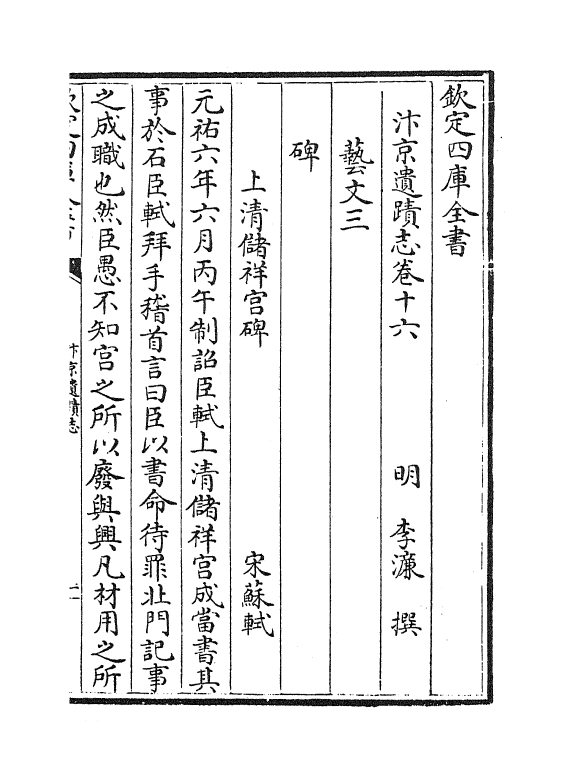 欽定四庫全書
汴京遺蹟志卷十六 明 李濂 撰
藝文三
碑
上清儲祥宫碑 宋蘇軾
元祐六年六月丙午制詔臣軾上清儲祥宫成當書其
事於石臣軾拜手稽首言曰臣以書命待罪北門記事
之成職也然臣愚不知宫之所以廢與興凡材用之所
汴京遺蹟志